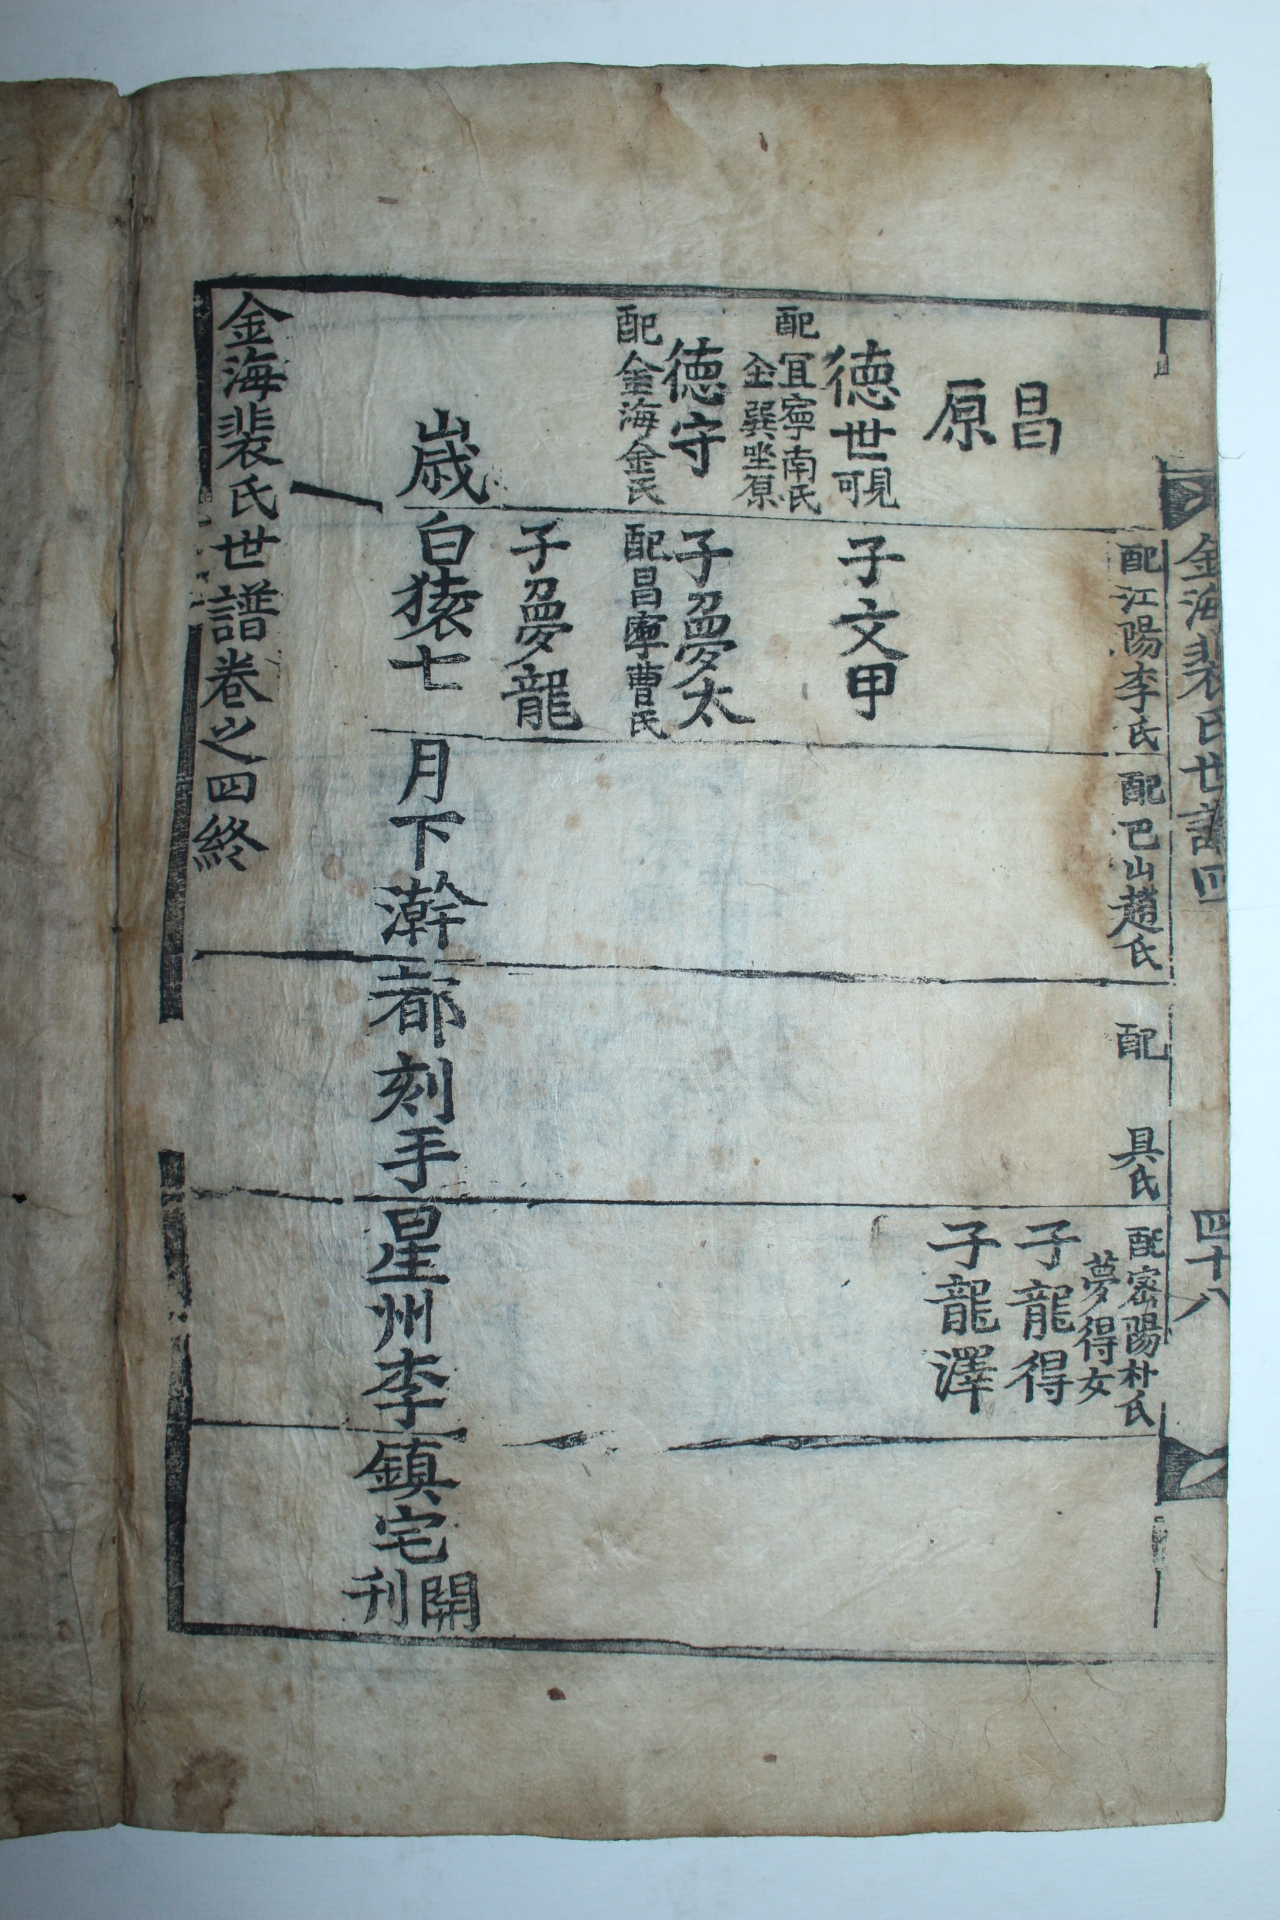 金海裴氏世譜四
四十八
配江陽李氏
配巴山趙氏
配
具氏
配密陽朴氏
夢得女
子龍得
子龍澤
昌
原
德世
可見
配宜寧南氏
金巽坐原
子文甲
德守
配金海金氏
子夢太
配昌寧曹氏
子夢龍
歲白猿七月下澣都刻手星州李鎮宅開刊
金海裴氏世譜卷之四終